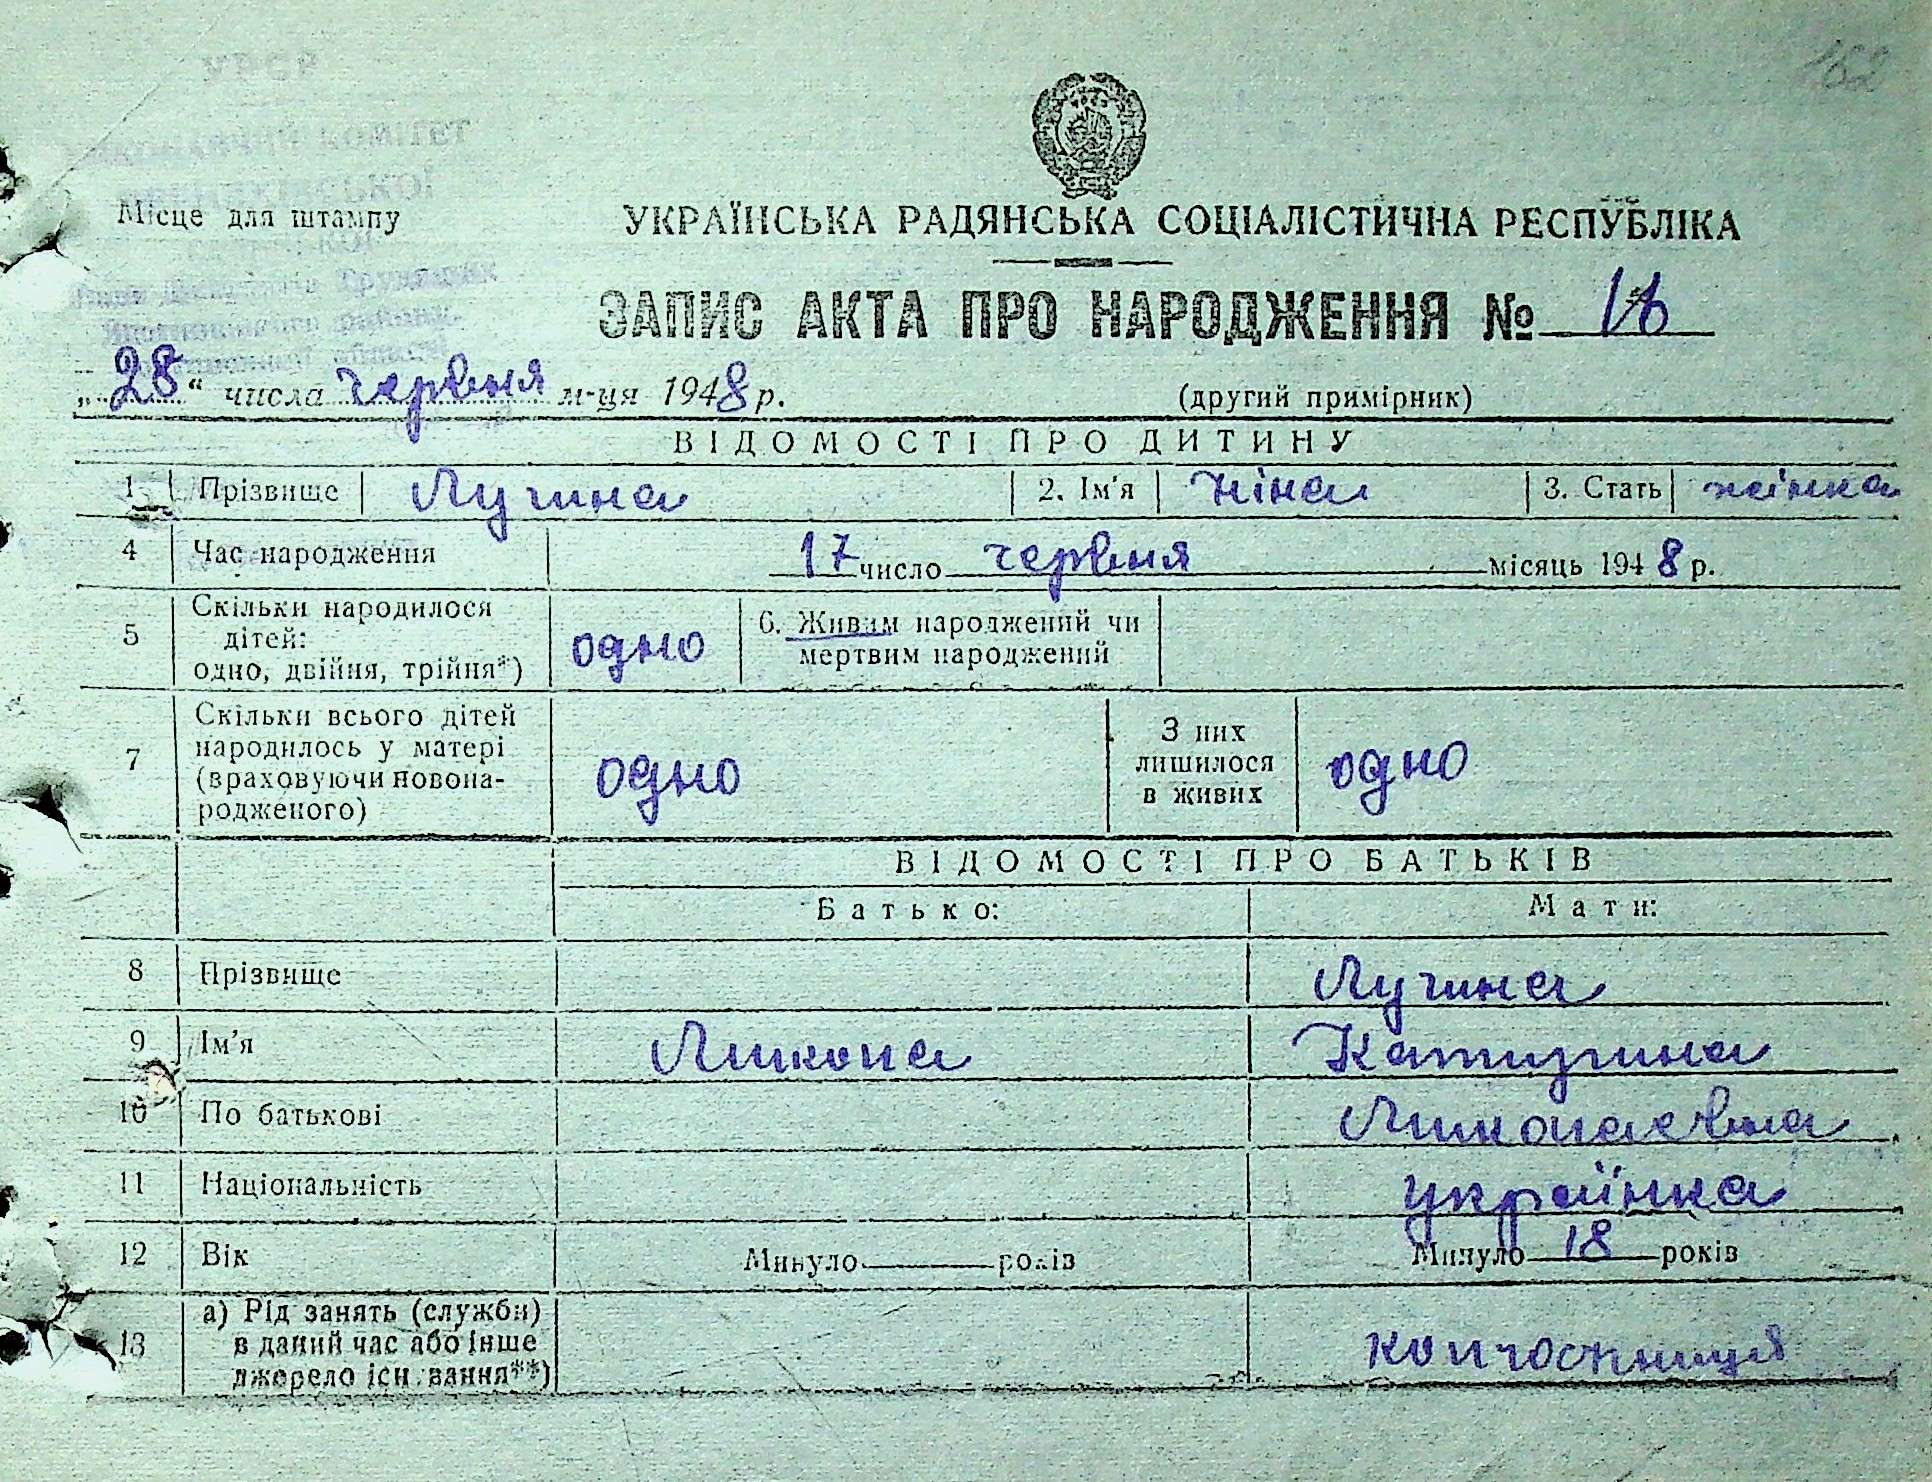 162
УРСР
ВИКОНАВЧИЙ КОМІТЕТ
Місце для штампу
УКРАЇНСЬКА РАДЯНСЬКА СОЦІАЛІСТИЧНА РЕСПУБЛІКА
ЗАПИС АКТА ПРО НАРОДЖЕННЯ № 16
„28“ числа червня м-ця 1948 р. (другий примірник)
ВІДОМОСТІ ПРО ДИТИНУ
1 Прізвище Лучина 2. Ім'я Ніна 3. Стать жінка
4 Час народження 17 число червня місяць 1948 р.
5 Скільки народилося дітей: одно, двійня, трійня*) одно 6. Живим народжений чи мертвим народжений
7 Скільки всього дітей народилось у матері (враховуючи новонародженого) одно З них лишилося в живих одно
ВІДОМОСТІ ПРО БАТЬКІВ
Батько: Мати:
8 Прізвище Лучина
9 Ім'я Микола Катирина
10 По батькові Миколаевна
11 Національність українка
12 Вік Минуло років Минуло 18 років
13 а) Рід занять (служби) в даний час або інше джерело існування**) колгоспниця